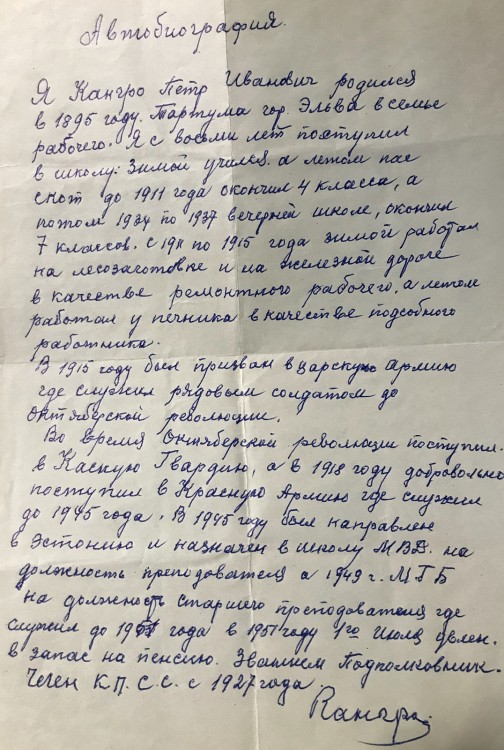 Автобиография.
Я Кангро Петр Иванович родился
в 1895 году. Тартума гор. Эльва в семье
рабочего. Я с восьми лет поступил
в школу: Зимой учился. а летом пас
скот до 1911 года окончил 4 класса, а
потом 1934 по 1937 вечерней школе, окончил
7 классов. с 1911 по 1915 года зимой работал
на лесозаготовке и на железной дороге
в качестве ремонтного рабочего, а летом
работал у печника в качестве подсобного
работника.
В 1915 году был призван в царскую армию
где служил рядовым солдатом до
Октяберской революции.
Во время Октяберской революции поступил.
в Каскую Гвардию, а в 1918 году добровольно
поступил в Красную Армию где служил
до 1945 года. В 1945 году был направлен
в Эстонию и назначен в школу МВД. на
должность преподователя а 1949 г. МГБ
на должность старшего преподователя где
служил до 1951 года в 1951 году 1го Июля увлен.
в запас на пенсию. Званием Подполковник.
Член К.П.С.С. с 1927 года.
Кангро